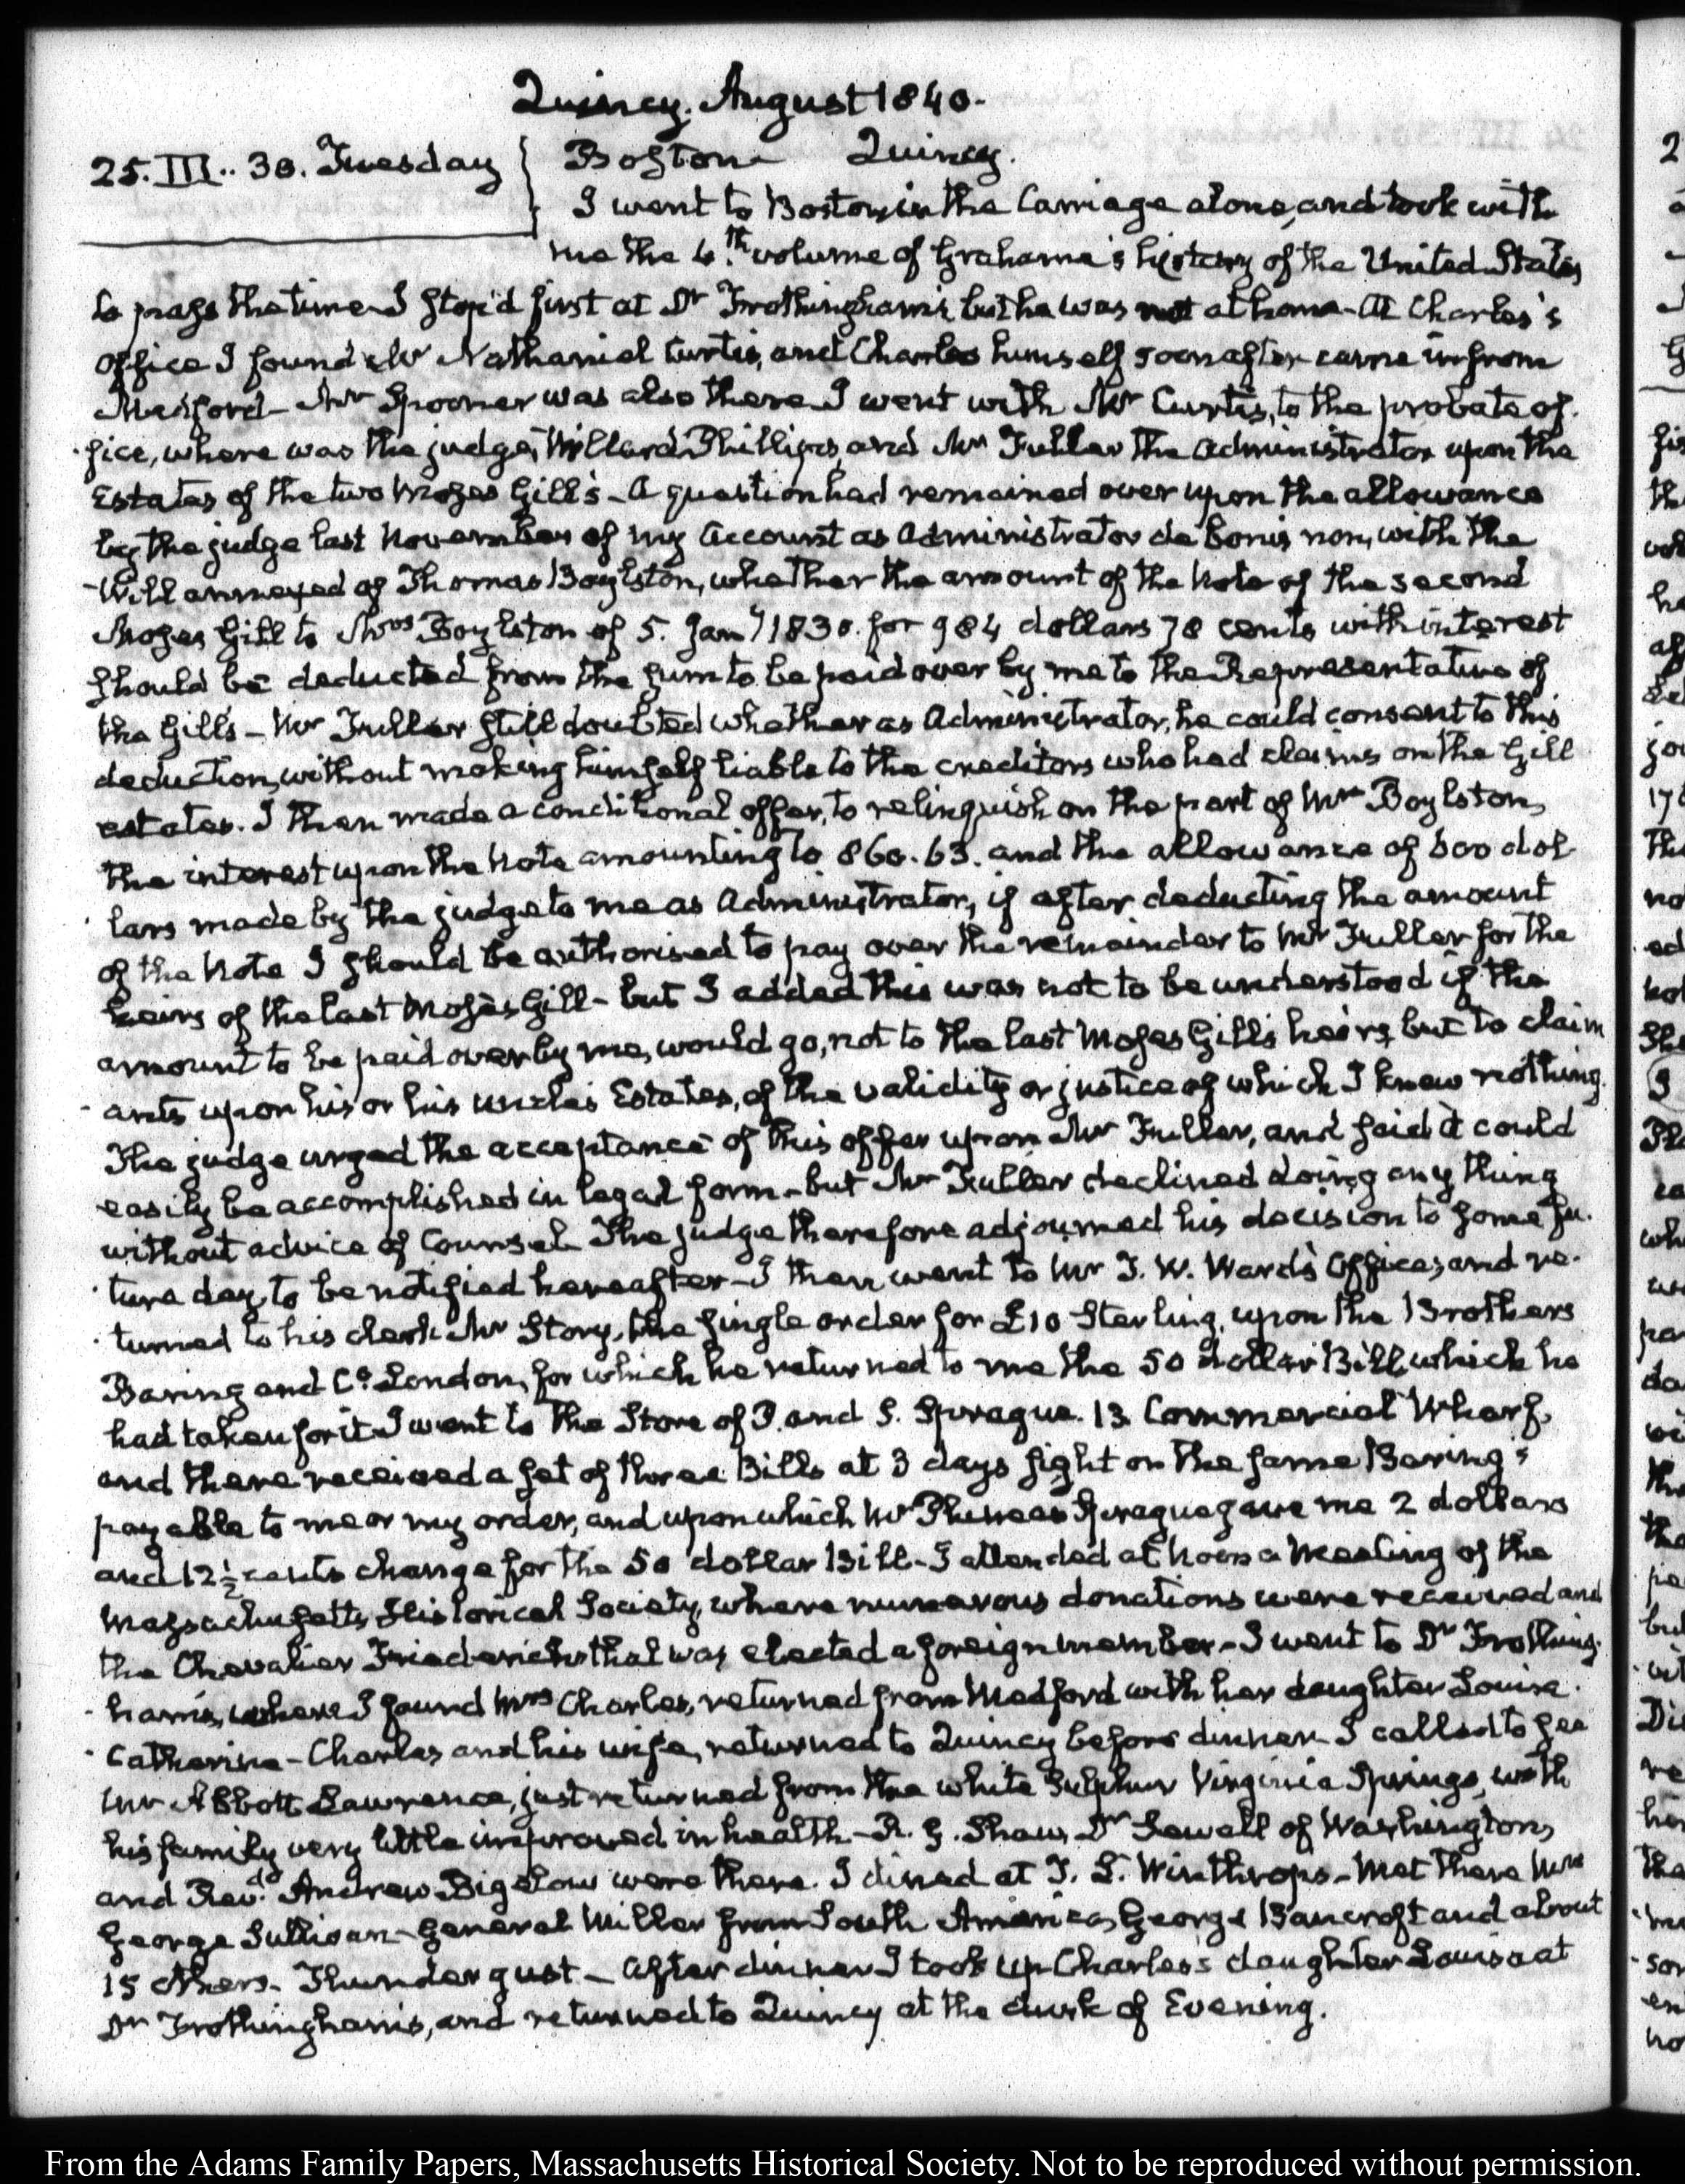 Quincy. August 1840.
25. III.. 30. Tuesday
Boston Quincy.
I went to Boston in the Carriage alone, and took with
me the 4th. volume of Grahame's history of the United States,
to pass the time. I stop'd first at Dr Frothingham's but he was not at home. At Charles's
Office I found Mr Nathaniel Curtis, and Charles himself soon after came in from
Medford. Mr Spooner was also there. I went with Mr Curtis, to the probate of-
fice, where was the judge, Willard Phillips, and Mr Fuller the Administrator upon the
Estates of the two Moses Gill's. A question had remained over upon the allowance
by the judge last November of my Account as Administrator de bonis non, with the
Will annexed of Thomas Boylston, whether the amount of the Note of the second
Moses Gill to Mrs Boylston of 5. Jany 1830. for 984 dollars 78 cents with interest
should be deducted from the sum to be paid over by me to the Representative of
the Gills. Mr Fuller still doubted whether as Administrator, he could consent to this
deduction, without making himself liable to the creditors who had claims on the Gill
estates. I then made a conditional offer, to relinquish on the part of Mrs Boylston,
the interest upon the Note amounting to 860.63. and the allowance of 600 dol-
lars made by the judge to me as Administrator, if after deducting the amount
of the Note I should be authorised to pay over the remainder to Mr Fuller for the
heirs of the last Moses Gill - but I added this was not to be understood if the
amount to be paid over by me, would go, not to the last Moses Gill's heirs, but to claim
ants upon his or his uncle's Estates, of the validity or justice of which I knew nothing.
The judge urged the acceptance of this offer upon Mr Fuller, and said it could
easily be accomplished in legal form - but Mr Fuller declined doing any thing
without advice of Counsel. The judge therefore adjourned his decision to some fu-
ture day, to be notified hereafter. I then went to Mr T. W. Ward's Office, and re-
turned to his clerk Mr Story, the single order for £10 Sterling, upon the Brothers
Baring and Co. London, for which he returned to me the 50 dollar Bill which he
had taken for it. I went to the Store of P. and S. Sprague. 13. Commercial Wharf,
and there received a set of three Bills at 3 days sight on the same Baring's
payable to me or my order, and upon which Mr Phineas Sprague gave me 2 dollars
and 12½ cents change for the 50 dollar Bill. I attended at Noon a Meeting of the
Massachusetts Historical Society, where numerous donations were received and
the Chevalier Friederichsthal was elected a foreign member. I went to Dr Frothing-
ham's, where I found Mrs Charles, returned from Medford with her daughter Louisa
Catherine. Charles and his wife, returned to Quincy before dinner. I called to see
Mr Abbott Lawrence, just returned from the white Sulphur Virginia Springs, with
his family very little improved in health. R. G. Shaw, Dr Sewall of Washington,
and Revd. Andrew Bigelow were there. I dined at T. L. Winthrop's. Met there Mr
George Sullivan. General Miller from South America, George Bancroft and about
15 others. Thunder gust. After dinner I took up Charles's daughter Louisa at
Dr Frothingham's, and returned to Quincy at the dusk of Evening.
From the Adams Family Papers, Massachusetts Historical Society. Not to be reproduced without permission.